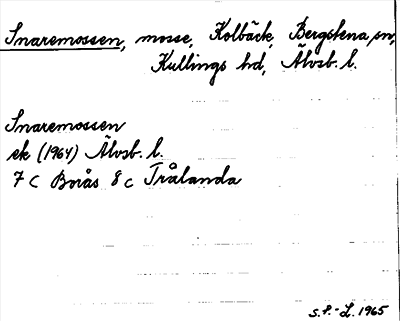 Snaremossen, mosse, Kolbäck, Bergstena sn,
Kullings hd, Älvsb. l.
Snaremossen
ek (1964) Älvsb. l.
7 C Borås 8 c Trålanda
S.F.-L. 1965